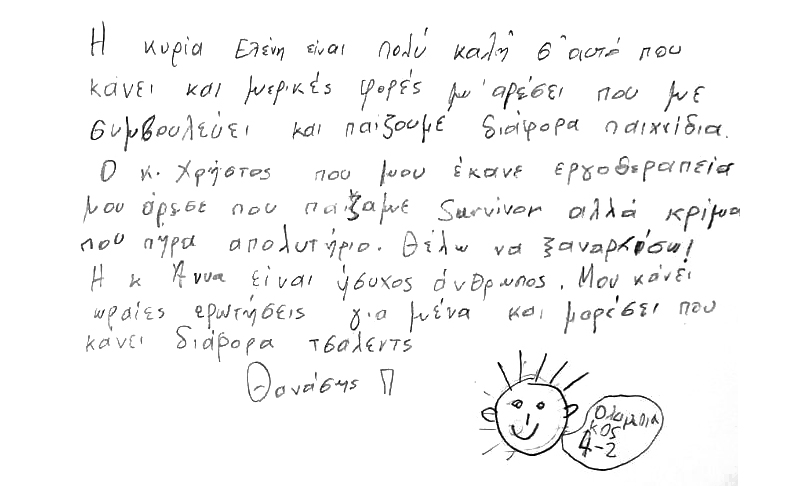 Η κυρία Ελένη είναι πολύ καλή σ'αυτό που
κάνει και μερικές φορές μ'αρέσει που με
συμβουλεύει και παίζουμε διάφορα παιχνίδια.
Ο κ. Χρήστος που μου έκανε εργοθεραπεία
μου άρεσε που παίζαμε Survivor αλλά κρίμα
που πήρα απολυτήριο. Θέλω να ξαναρχίσω!
Η κ Άννα είναι ήσυχος άνθρωπος. Μου κάνει
ωραίες ερωτήσεις για μένα και μαρέσει που
κάνει διάφορα τσαλεντς
Θανάσης Π
Ολυμπια
κος
4-2